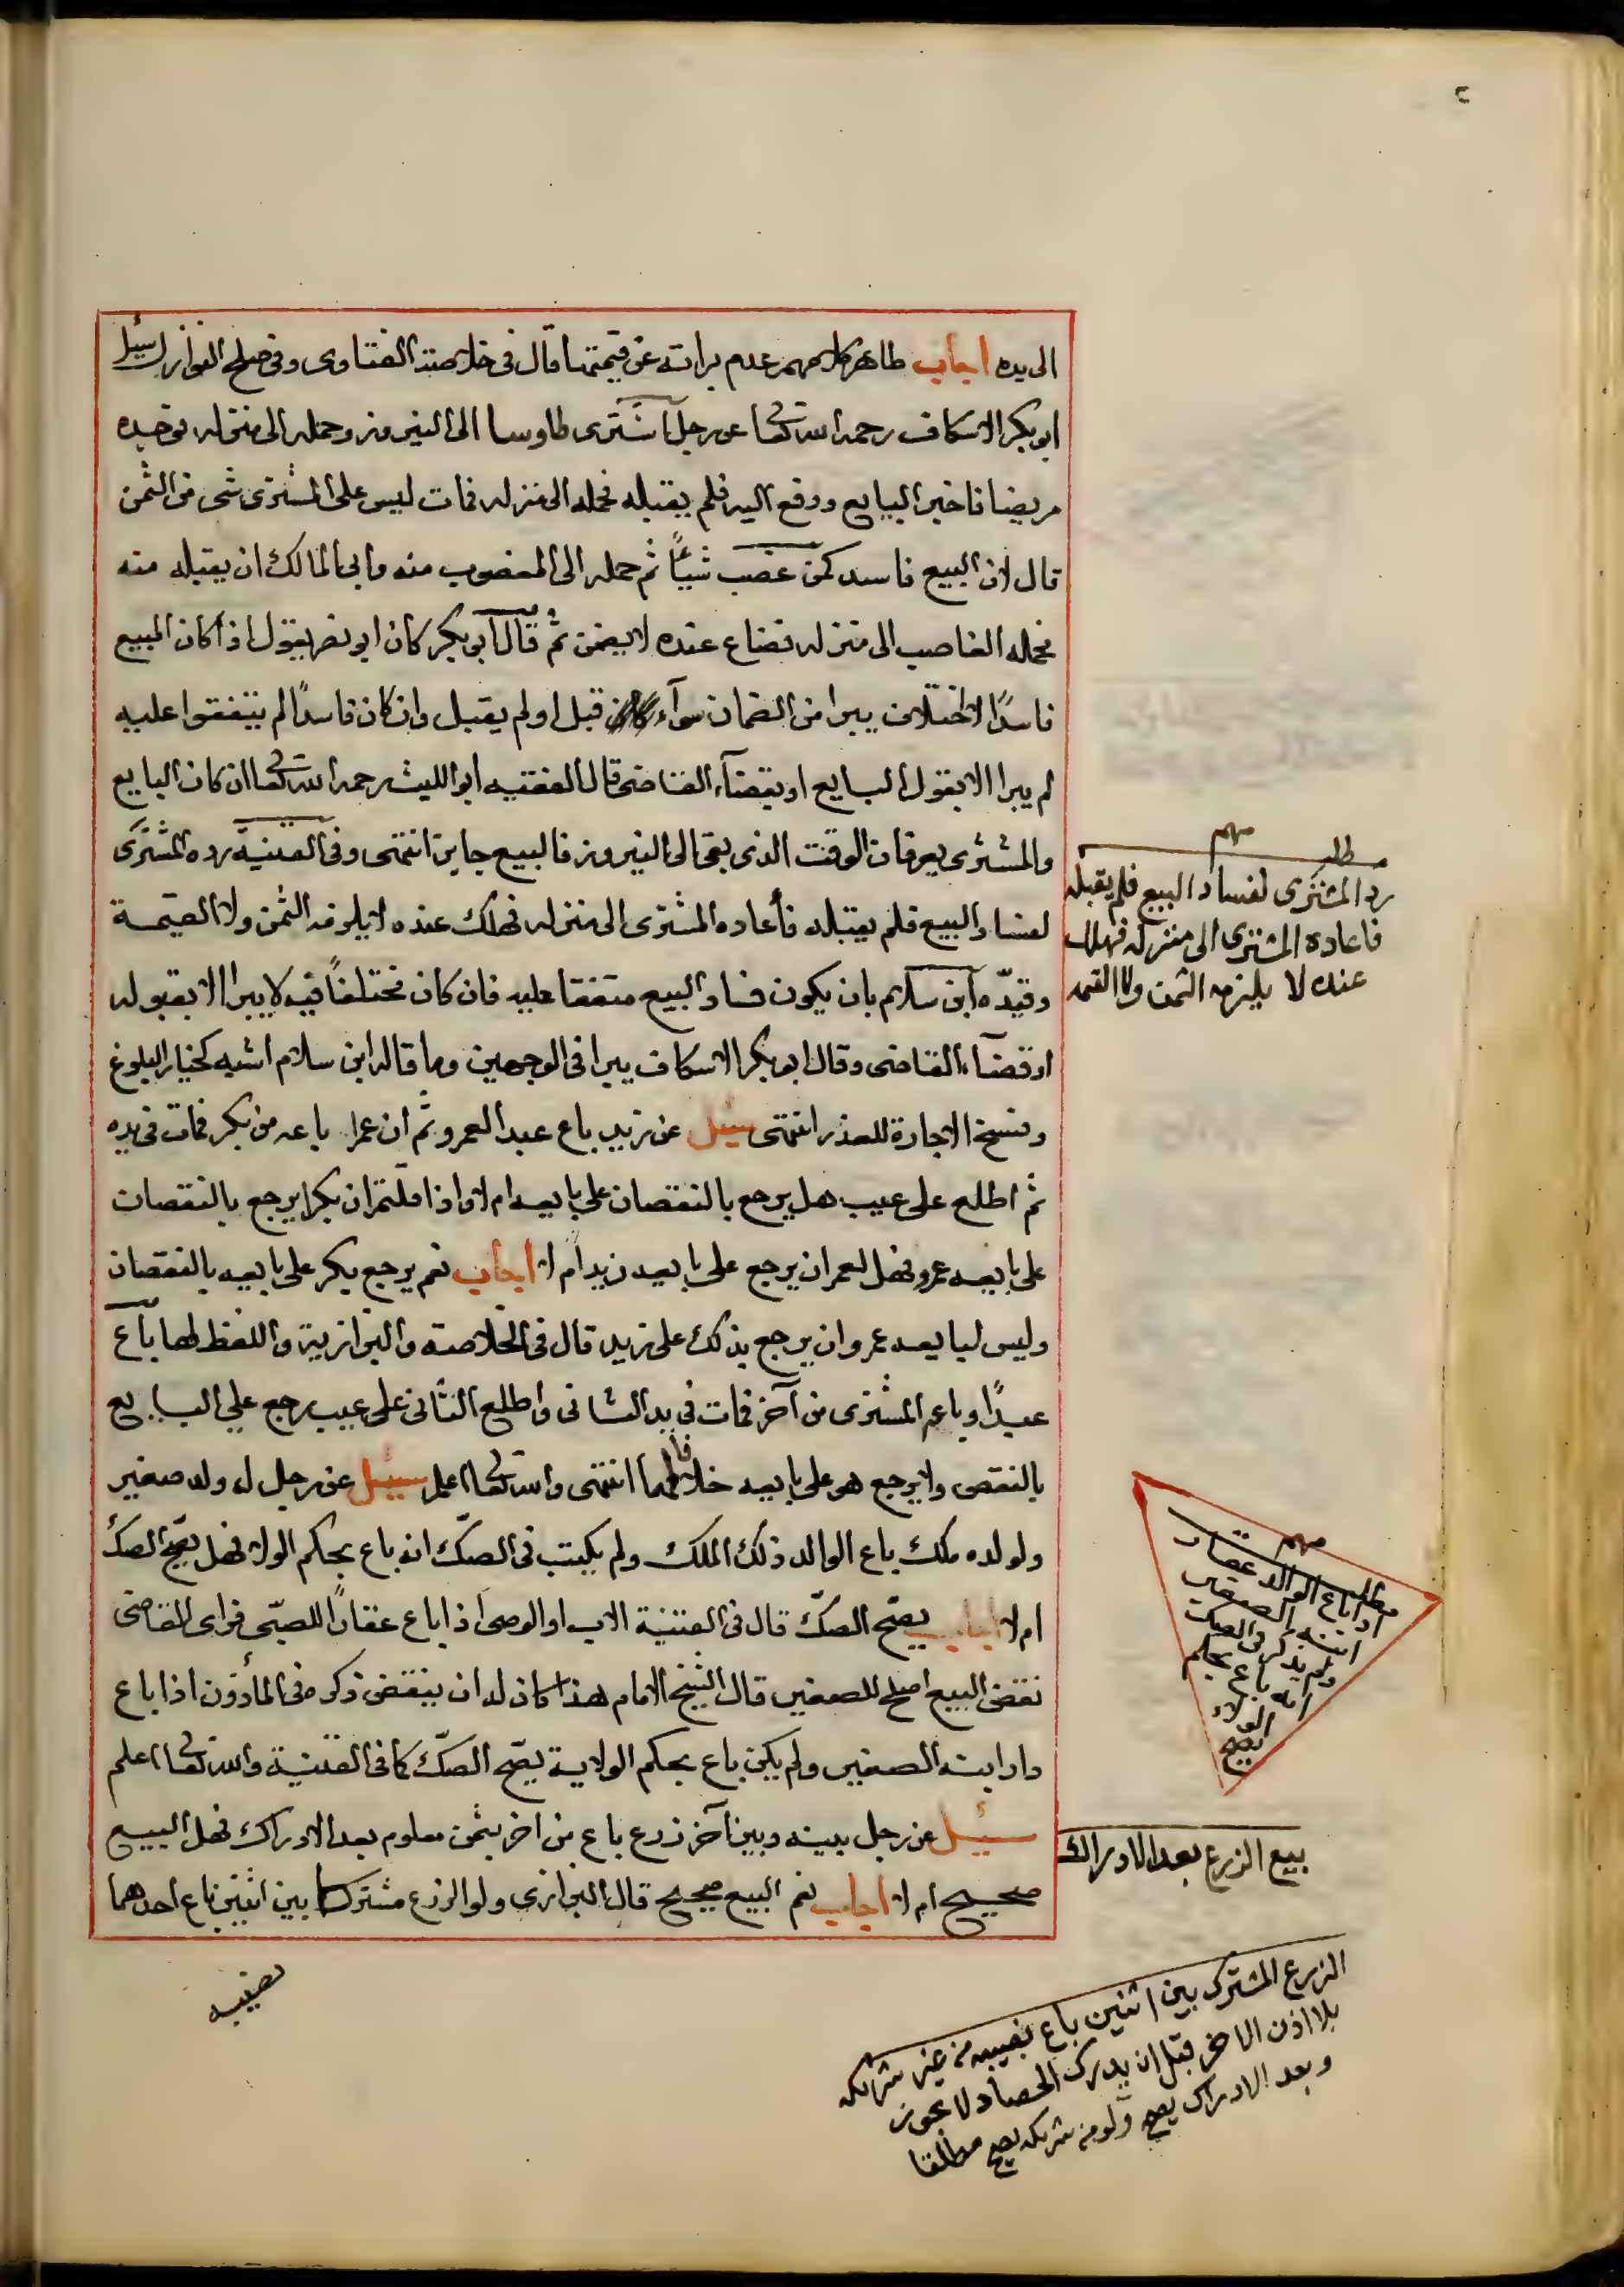 ٢
الى يده اجاب ظاهر كلامهم عدم براته عن قيمتها قال فى خلاصة الفتاوى وفى صلح النوازل سئل
ابو بكر الاسكاف رحمه الله تعالى عن رجل اشترى طاوسا الى النيروز وحمله الى منزله فوجده
مريضا فاخبر البايع ودفع اليه فلم يقبله فحمله الى منزله فمات ليس على المشترى شى من الثمن
قال لان البيع فاسد كمن غصب شيأً ثم حمله الى المغصوب منه وابى المالك ان يقبله منه
فحمله الغاصب الى منزله فضاع عنده لا يضمن ثم قال ابو بكر كان ابو نصر يقول اذا كان المبيع
فاسدًا لاختلاف يبرا من الضمان سوآء قبل او لم يقبل وان كان فاسدًا لم يتفقوا عليه
لم يبرا الا بقول البايع او بقضآء القاضى قال الفقيه ابو الليث رحمه الله تعالى ان كان البايع
والمشترى يعرفان الوقت الذى بقى الى النيروز فالبيع جايز انتهى وفى القنية رده المشترى
لفساد البيع فلم يقبله فأعاده المشترى الى منزله فهلك عنده لا يلزمه الثمن ولا القيمة
وقيّده ابن سلام بان يكون فساد البيع متفقا عليه فان كان مختلفاً فيه لا يبرا الا بقبوله
او قضآء القاضى وقال ابو بكر الاسكاف يبرا فى الوجهين وما قاله ابن سلام اشبه كخيار البلوغ
وفسخ الاجارة للعذر انتهى سئل عن زيد باع عبدا لعمرو ثم ان عمرا باعه من بكر فمات فى يده
ثم اطلع على عيب هل يرجع بالنقصان على بايعه ام لا واذا قلتم ان بكرا يرجع بالنقصان
على بايعه عمرو فهل لعمر ان يرجع على بايعه زيد ام لا اجاب نعم يرجع بكر على بايعه بالنقصان
وليس لبايعه عمرو ان يرجع بذلك على زيد قال فى الخلاصة والبزازية واللفظ لها باع
عبدًا وباعه المشترى من آخر فمات فى يد الثانى واطلع الثانى على عيب رجع على البايع
بالنقص ولا يرجع هو على بايعه خلافا لهما انتهى والله تعالى اعلم سئل عن رجل له ولد صغير
ولولده ملك باع الوالد ذلك الملك ولم يكتب فى الصكّ انه باع بحكم الولاية فهل يصح الصك
ام لا اجاب يصحّ الصكّ قال فى القنية الاب او الوصى اذا باع عقارًا للصبّى فراى القاضى
نقض البيع اصلح للصغير قال الشيخ الامام هذا كان له ان ينقض ذكره فى المأذون اذا باع
دار ابنه الصغير ولم يكن باع بحكم الولاية يصحّ الصكّ كما فى القنية والله تعالى اعلم
سئل عن رجل بينه وبين آخر زرع باع من اخر بثمن معلوم بعد الادراك فهل البيع
صحيح ام لا اجاب نعم البيع صحيح قال البزازى ولو الزرع مشتركا بين اثنين باع احدهما
نصيبه
مطلب مهم
ردّ المشترى لفساد البيع فلم يقبله
فاعاده المشترى الى منزله فهلك
عنده لا يلزمه الثمن ولا القيمه
مهم
مطلب
اذا باع الوالد عقار
ابنه الصغير
ولم يذكر فى الصك
انه باع بحكم
الولاء
يصح
بيع الزرع بعد الادراك
الزرع المشترك بين اثنين باع نصيبه من غير شريكه
بلا اذن الاخر قبل ان يدرك الحصاد لا يجوز
وبعد الادراك يصح ولو من شريكه يصح مطلقا